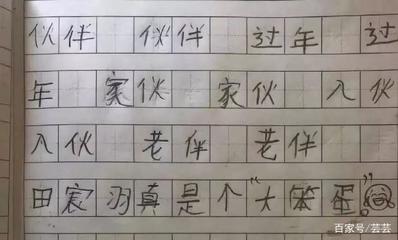 伙伴 伙伴 过年 过
年 家伙 家伙 入伙
入伙 老伴 老伴
田宸羽真是个“大笨蛋”
百家号/芸芸